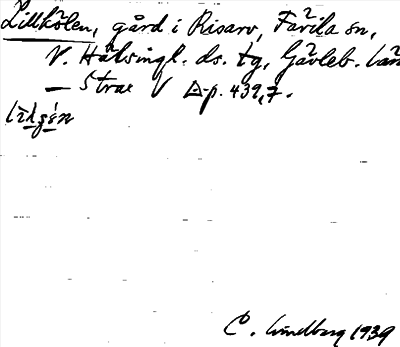 Lillkölen, gård i Risarv, Färila sn,
V. Hälsingl. ds. tg, Gävleb. län
— Strax V △ p. 439,7.
C. Lindberg 1939